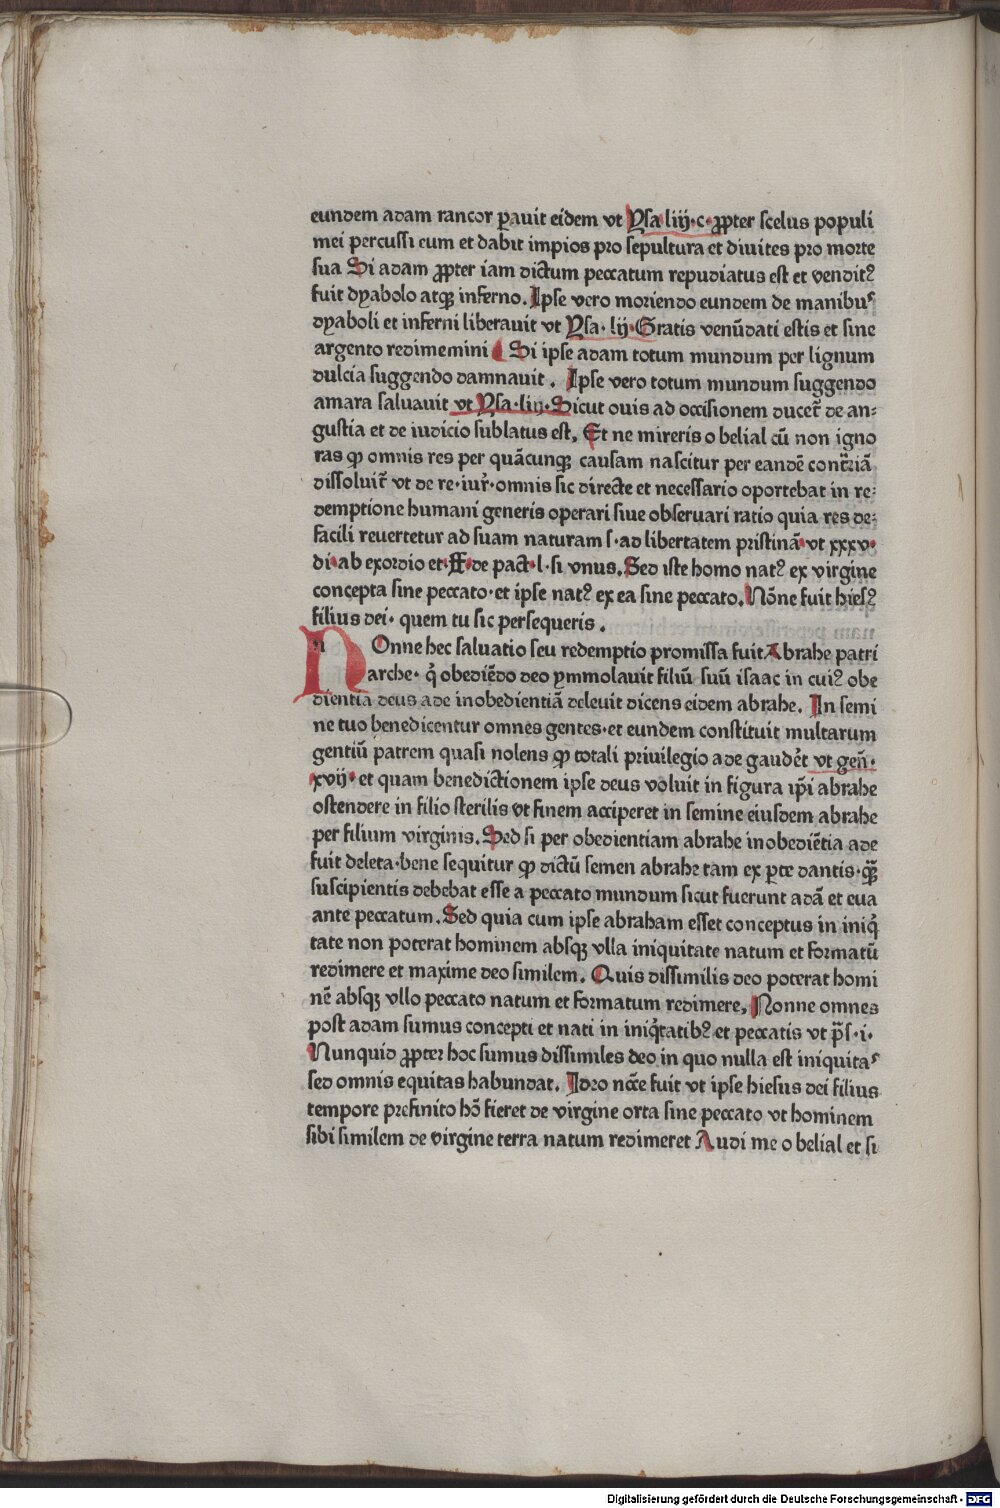 eundem adam rancor ꝑauit eidem vt Ysa liij·c·ꝓpter scelus populi
mei percussi eum et dabit impios pro sepultura et diuites pro morte
sua Si adam ꝓpter iam dictum peccatum repudiatus est et venditꝰ
fuit dyabolo atqꝫ inferno. Ipse vero moriendo eundem de manibus
dyaboli et inferni liberauit vt Ysa· lij·Gratis venūdati estis et sine
argento redimemini Si ipse adam totum mundum per lignum
dulcia suggendo damnauit . Ipse vero totum mundum suggendo
amara saluauit vt Ysa·liij·Sicut ouis ad occisionem ducet̄ de an⸗
gustia et de iudicio sublatus est. Et ne mireris o belial cū non igno
ras ꝙ omnis res per quācunqꝫ causam nascitur per eandē contr̄iā
dissoluit̄ vt de re·iur̄·omnis sic directe et necessario oportebat in re⸗
demptione humani generis operari siue obseruari ratio quia res de⸗
facili reuertetur ad suam naturam s·ad libertatem pristinā·vt xxxv·
di·ab exordio et·ff·de pact·l·si vnus. Sed iste homo natꝰ ex virgine
concepta sine peccato·et ipse natꝰ ex ea sine peccato. Nōne fuit hiesꝰ
filius dei· quem tu sic persequeris .
NOnne hec saluatio seu redemptio promissa fuit Abrahe patri
arche· q̇ obediēdo deo ymmolauit filiū suū isaac in cuiꝰ obe
dientia deus ade inobedientiā deleuit dicens eidem abrahe. In semi
ne tuo benedicentur omnes gentes·et eundem constituit multarum
gentiū patrem quasi nolens ꝙ totali priuilegio ade gaudēt vt gen̄·
xvij·et quam benedictionem ipse deus voluit in figura ip̄i abrahe
ostendere in filio sterilis vt finem acciperet in semine eiusdem abrahe
per filium virginis. Sed si per obedientiam abrahe inobediētia ade
fuit deleta·bene sequitur ꝙ dictū semen abrahe tam ex ꝑte dantis·qꝫ̄
suscipientis debebat esse a peccato mundum sicut fuerunt adā et eua
ante peccatum. Sed quia cum ipse abraham esset conceptus in iniq̇
tate non poterat hominem absqꝫ vlla iniquitate natum et formatū
redimere et maxime deo similem. Quis dissimilis deo poterat homi
nē absqꝫ vllo peccato natum et formatum redimere. Nonne omnes
post adam sumus concepti et nati in iniq̇tatibꝰ et peccatis vt p̄s·i·
Nunquid ꝓpter hoc sumus dissimiles deo in quo nulla est iniquitas
sed omnis equitas habundat. Ideo nc̄ce fuit vt ipse hiesus dei filius
tempore prefinito hō fieret de virgine orta sine peccato vt hominem
sibi similem de virgine terra natum redimeret Audi me o belial et si
Digitalisierung gefördert durch die Deutsche Forschungsgemeinschaft · DFG